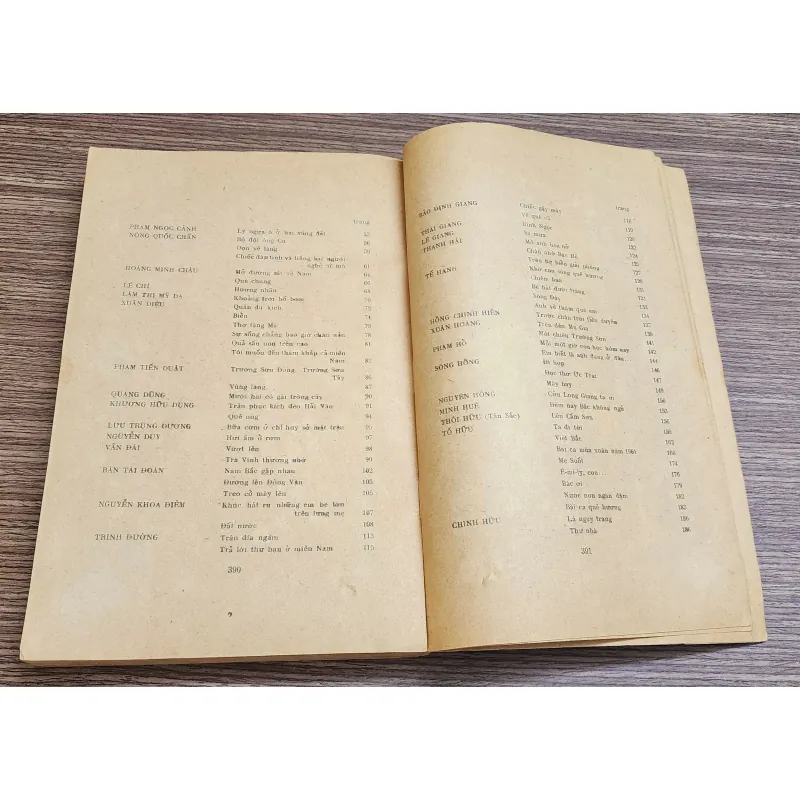 trang
PHẠM NGỌC CẢNH Lý ngựa ô ở hai vùng đất 53
NÔNG QUỐC CHẤN Bộ đội ông Cụ 56
Dọn về làng 59
Chiếc đàn tính và tiếng hát người
nghệ sĩ mù 61
HOÀNG MINH CHÂU Mở đường sắt về Nam 64
Quá chang 66
LÊ CHÍ Hương nhãn 68
LÂM THỊ MỸ DẠ Khoảng trời hố bom 70
XUÂN DIỆU Quán du kích 72
Biển 74
Thơ tặng Mẹ 76
Sự sống chẳng bao giờ chán nản 79
Quả sấu non trên cao 81
Tôi muốn đến thăm khắp cả miền
Nam 82
PHẠM TIẾN DUẬT Trường Sơn Đông, Trường Sơn
Tây 86
Vùng làng 87
QUANG DŨNG Mười hai cô gái trồng cây 90
KHƯƠNG HỮU DỤNG Trận phục kích đèo Hải Vân 91
Quê ong 94
LƯU TRÙNG DƯƠNG Bữa cơm ở chỉ huy sở mặt trận 95
NGUYỄN DUY Hơi ấm ổ rơm 97
VÂN ĐÀI Vượt lên 98
Trà Vinh thương nhớ 99
BÀN TÀI ĐOÀN Nam Bắc gặp nhau 102
Đường lên Đồng Văn 105
Treo cờ máy lên 105
NGUYỄN KHOA ĐIỀM Khúc hát ru những em bé lớn
trên lưng mẹ 107
Đất nước 108
TRINH ĐƯỜNG Trận địa ngầm 113
Trả lời thư bạn ở miền Nam 115
390
trang
BẢO ĐỊNH GIANG Chiếc gậy mây 116
Về quê cũ
THÁI GIANG Bình Ngọc 120
LÊ GIANG Sa mưa 122
THANH HẢI Mồ anh hoa nở 122
Cháu nhớ Bác Hồ 124
TẾ HANH
Nhớ con sông quê hương
Chiêm bao
Bài hát
Sóng
Anh về thăm quê em
HỒNG CHINH HIỀN
XUÂN HOÀNG Trên đèo Mụ Giạ 137
Một chiều Trường Sơn 139
PHẠM HỔ Mỗi một giờ con học hôm nay 141
Em biết là anh đang ở đâu... 144
SÓNG HỒNG Đi họp 146
Đọc thơ Ức Trai 147
Mây bay 149
NGUYÊN HỒNG Cửu Long Giang ta ơi 150
MINH HUỆ Đêm nay Bác không ngủ 156
THÔI HỮU (Tân Sắc) Lên Cấm Sơn 158
TỐ HỮU Ta đi tới 160
Việt Bắc 163
Bài ca mùa xuân năm 1961 168
Mẹ Suốt 174
Ê-mi-ly, con... 176
Bác ơi 179
Nước non ngàn dặm 182
Bài ca quê hương 182
CHÍNH HỮU Lá ngụy trang 186
Thư nhà 186
391